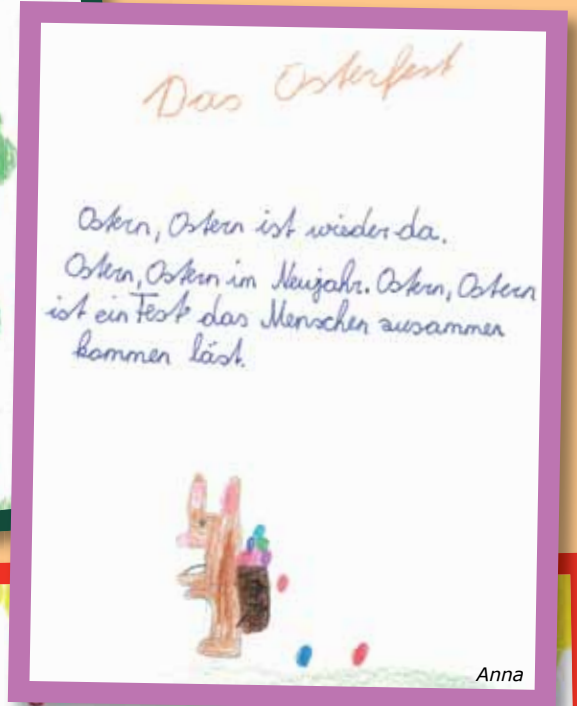 Das Osterfest
Ostern, Ostern ist wieder da.
Ostern, Ostern im Neujahr. Ostern, Ostern
ist ein Fest das Menschen zusammen
kommen läst.
Anna